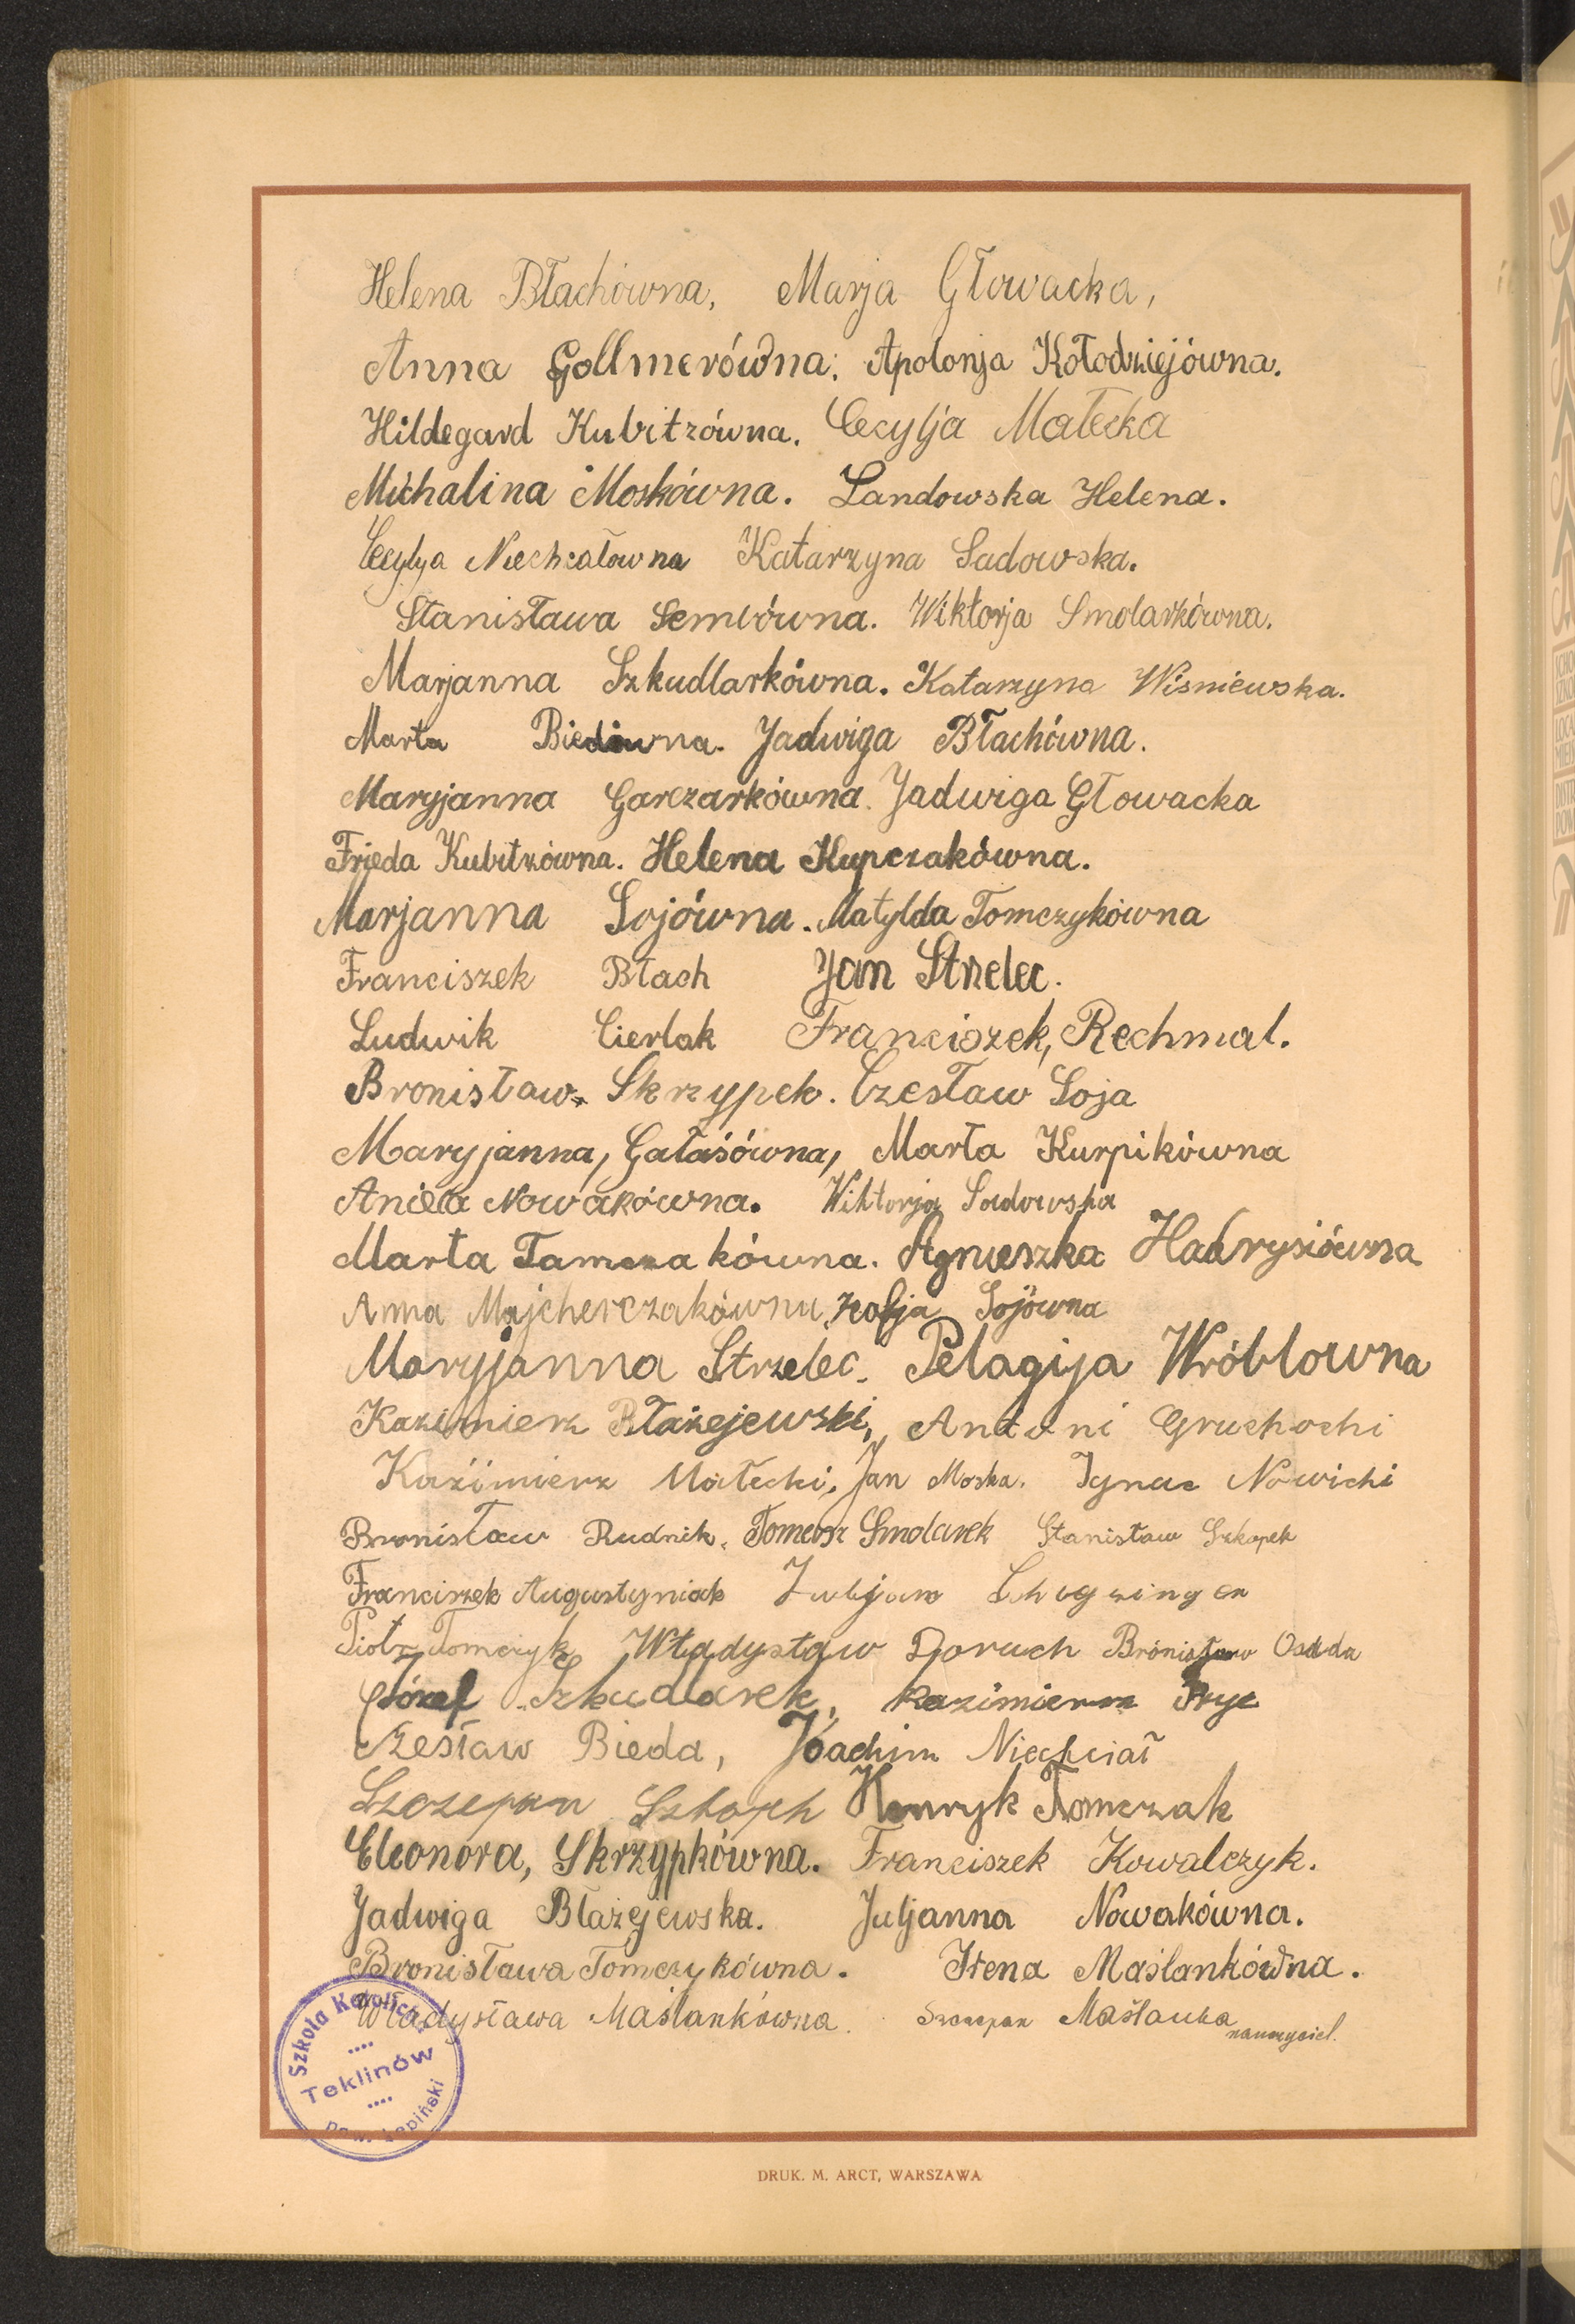 Helena Błachówna, Marja Głowacka,
Anna Gollmerówna; Apolonja Kołodziejówna.
Hildegard Kubitzówna. Cecylja Małecka
Michalina Moskówna. Landowska Helena.
Cecylya Niechcałowna Katarzyna Sadowska.
Stanisława Sembówna. Wiktorja Smolarkówna.
Marjanna Szkudlarkówna. Katarzyna Wiśniewska.
Marta Biedówna. Jadwiga Błachówna.
Maryjanna Garczarkówna. Jadwiga Głowacka
Frieda Kubitzówna. Helena Kupczakówna.
Marjanna Sojówna. Matylda Tomczykówna
Franciszek Błach Jan Strzelec.
Ludwik Cierlak Franciszek, Rechmal.
Bronisław. Skrzypek. Czesław Soja
Maryjanna, Gałaśówna, Marta Kurpikówna
Aniela Nowakówna. Wiktorja Sadowska
Marta Tamczakówna. Agnieszka Hadrysiówna
Anna Majcherczakówna, Zofja Sojówna
Maryjanna Strzelec. Pelagija Wróblowna
Kazimierz Błażejewski, Antoni Gruchocki
Kaźimierz Małecki, Jan Moska. Ignac Nowicki
Bronisław Rudnik. Tomasz Smolarek Stanisław Szkopek
Franciszek Augustyniak Juljan
Piotr Tomczyk Władysław Doruch Bronisław Osada
Józef Szkudlarek, Kazimierz Brył
Czesław Bieda, Joachim Niechciał
Szczepan Szkopek Henryk Tomczak
Eleonora, Skrzypkówna. Franciszek Kowalczyk.
Jadwiga Błażejewska. Juljanna Nowakówna.
Bronisława Tomczykówna. Irena Maślankówna.
Władysława Maślankówna. Szczepan Maślanka
nauczyciel.
Szkoła Katolicka
Teklinów
pow. kępiński
DRUK. M. ARCT, WARSZAWA